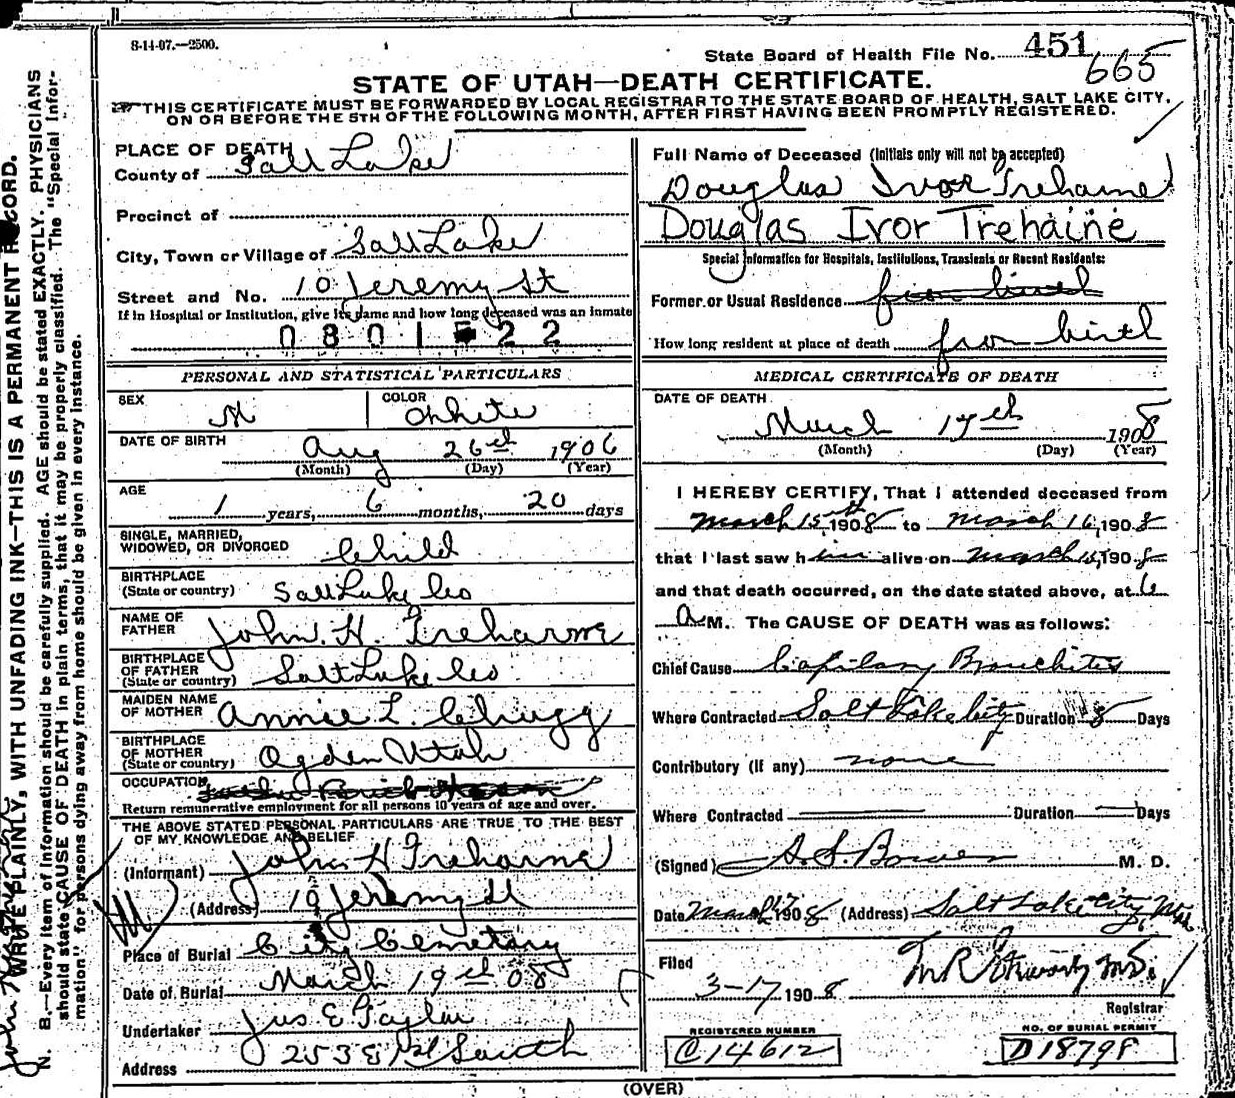 8-14-07.—2500.
State Board of Health File No. 451
665
STATE OF UTAH—DEATH CERTIFICATE.
THIS CERTIFICATE MUST BE FORWARDED BY LOCAL REGISTRAR TO THE STATE BOARD OF HEALTH, SALT LAKE CITY,
ON OR BEFORE THE 5TH OF THE FOLLOWING MONTH, AFTER FIRST HAVING BEEN PROMPTLY REGISTERED.
PLACE OF DEATH
County of Salt Lake
Precinct of
City, Town or Village of Salt Lake
Street and No. 10 Jeremy St
If in Hospital or Institution, give its name and how long deceased was an inmate
0801 22
PERSONAL AND STATISTICAL PARTICULARS
SEX M COLOR White
DATE OF BIRTH Aug 26th 1906
(Month) (Day) (Year)
AGE 1 years, 6 months, 20 days
SINGLE, MARRIED, WIDOWED, OR DIVORCED Child
BIRTHPLACE (State or country) Salt Lake Co
NAME OF FATHER John H. Treharne
BIRTHPLACE OF FATHER (State or country) Salt Lake Co
MAIDEN NAME OF MOTHER Annie L. Chugg
BIRTHPLACE OF MOTHER (State or country) Ogden Utah
OCCUPATION
Return remunerative employment for all persons 10 years of age and over.
THE ABOVE STATED PERSONAL PARTICULARS ARE TRUE TO THE BEST
OF MY KNOWLEDGE AND BELIEF
(Informant) John H Treharne
(Address) 10 Jeremy St
Place of Burial City Cemetary
Date of Burial March 19th 08
Undertaker Jos E Taylor
Address 253 E 1st South
Full Name of Deceased (Initials only will not be accepted)
Douglas Ivor Trehaine
Douglas Ivor Trehaine
Special Information for Hospitals, Institutions, Transients or Recent Residents:
Former or Usual Residence from birth
How long resident at place of death from birth
MEDICAL CERTIFICATE OF DEATH
DATE OF DEATH
March 17th 1908
(Month) (Day) (Year)
I HEREBY CERTIFY, That I attended deceased from
March 15th 1908 to March 16, 1908
that I last saw him alive on March 15, 1908
and that death occurred, on the date stated above, at 6
A M. The CAUSE OF DEATH was as follows:
Chief Cause Capilary Bronchites
Where Contracted Salt Lake City Duration 8 Days
Contributory (if any) none
Where Contracted Duration Days
(Signed) S. S. Bower M. D.
Date March 17 1908 (Address) Salt Lake City Utah
Filed
3-17 1908
Registrar
REGISTERED NUMBER
C14612
NO. OF BURIAL PERMIT
D18798
(OVER)
WRITE PLAINLY, WITH UNFADING INK—THIS IS A PERMANENT RECORD.
N. B.—Every item of information should be carefully supplied. AGE should be stated EXACTLY. PHYSICIANS
should state CAUSE OF DEATH in plain terms, that it may be properly classified. The "Special Infor-
mation" for persons dying away from home should be given in every instance.